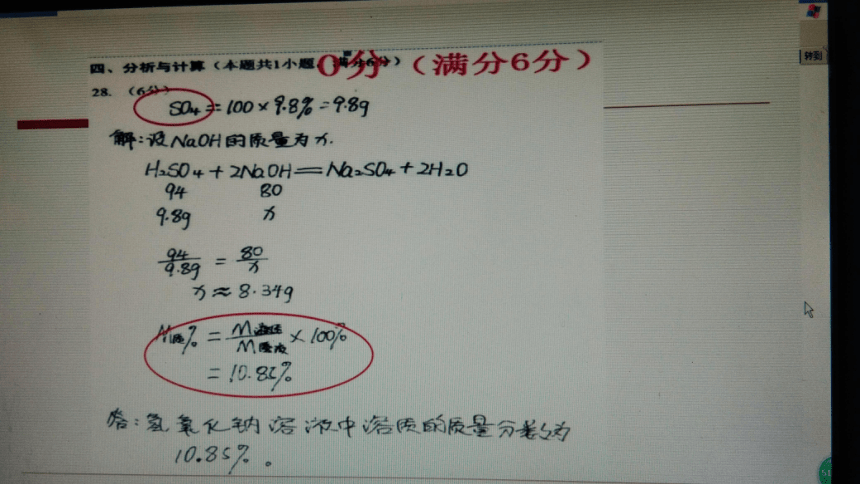 四、分析与计算(本题共1小题,满分6分)
0分(满分6分)
转到
28. (6分)
SO₄ = 100 × 9.8% = 9.8g
解:设NaOH的质量为x.
H₂SO₄ + 2NaOH = Na₂SO₄ + 2H₂O
94 80
9.8g x
94/9.8g = 80/x
x ≈ 8.34g
M质% = M溶质/M溶液 × 100%
= 10.85%
答:氢氧化钠溶液中溶质的质量分数为
10.85%。
51